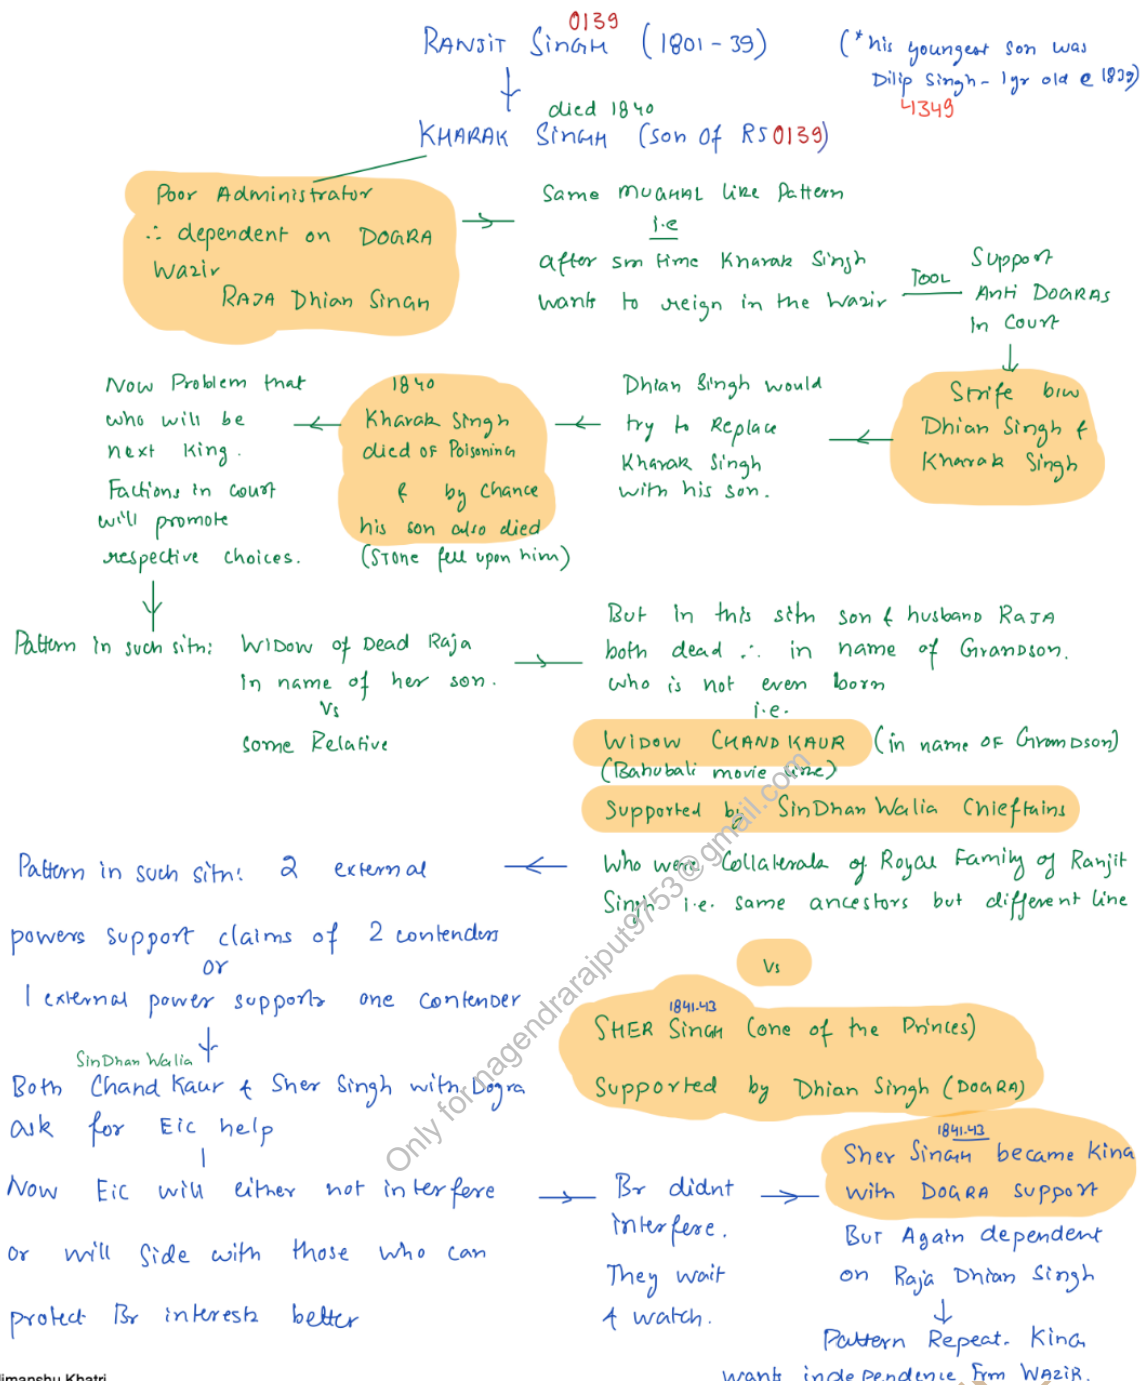 0139
RANJIT SINGH (1801-39)
(*his youngest son was
Dilip Singh - 1yr old @ 1839)
4349
died 1840
KHARAK SINGH (son of RS 0139)
Poor Administrator
∴ dependent on DOGRA
Wazir
RAJA Dhian Singh
Same MUGHAL like Pattern
i.e
after sm time Kharak Singh
wants to reign in the Wazir
TOOL
Support
Anti DOGRAS
In Court
Strife b/w
Dhian Singh &
Kharak Singh
Dhian Singh would
try to Replace
Kharak Singh
with his son.
1840
Kharak Singh
died OF Poisoning
& by chance
his son also died
(Stone fell upon him)
Now Problem that
who will be
next King.
Factions in court
will promote
respective choices.
Pattern in such sitn:
WIDOW of Dead Raja
In name of her son.
Vs
Some Relative
But In this sitn son & husband RAJA
both dead ∴ in name of Grandson.
who is not even born
i.e.
WIDOW CHAND KAUR (in name OF GranDson)
(Bahubali movie like)
Supported by SinDhan Walia Chieftains
who were Collaterals of Royal Family of Ranjit
Singh i.e. same ancestors but different line
Vs
1841-43
SHER SINGH (one of the Princes)
Supported by Dhian Singh (DOGRA)
Pattern in such sitn: 2 external
powers support claims of 2 contenders
or
1 external power supports one contender
SinDhan Walia
Both Chand Kaur & Sher Singh with Dogra
ask for Eic help
Now EIC will either not interfere
or will side with those who can
protect Br interests better
Br didnt
interfere.
They wait
& watch.
1841-43
Sher Singh became King
with DOGRA support
But Again dependent
on Raja Dhian Singh
Pattern Repeat. King
wants independence frm WAZIR.
Only for nagendrarajput9753@gmail.com
Himanshu Khatri